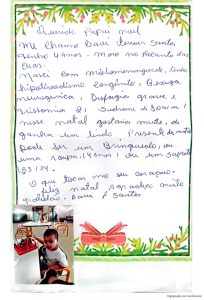 Querido Papai noel
Me chamo Davi Santos
Tenho 4 Anos. Moro no Recanto das
Emas.
Nasci com mielomeningocele,
hipotiroidismo congênito, Bexiga
neurogenica, Disfagia grave e
Trissomia 21
nesse natal gostaria muito, de
ganhar um lindo Presente de natal
Pode ser um Brinquedo, ou
uma roupa. (4 Anos) ou um Sapato
23/24.
O que tocar no seu coração
feliz natal Agradeço muito
gratidão. Davi Santos